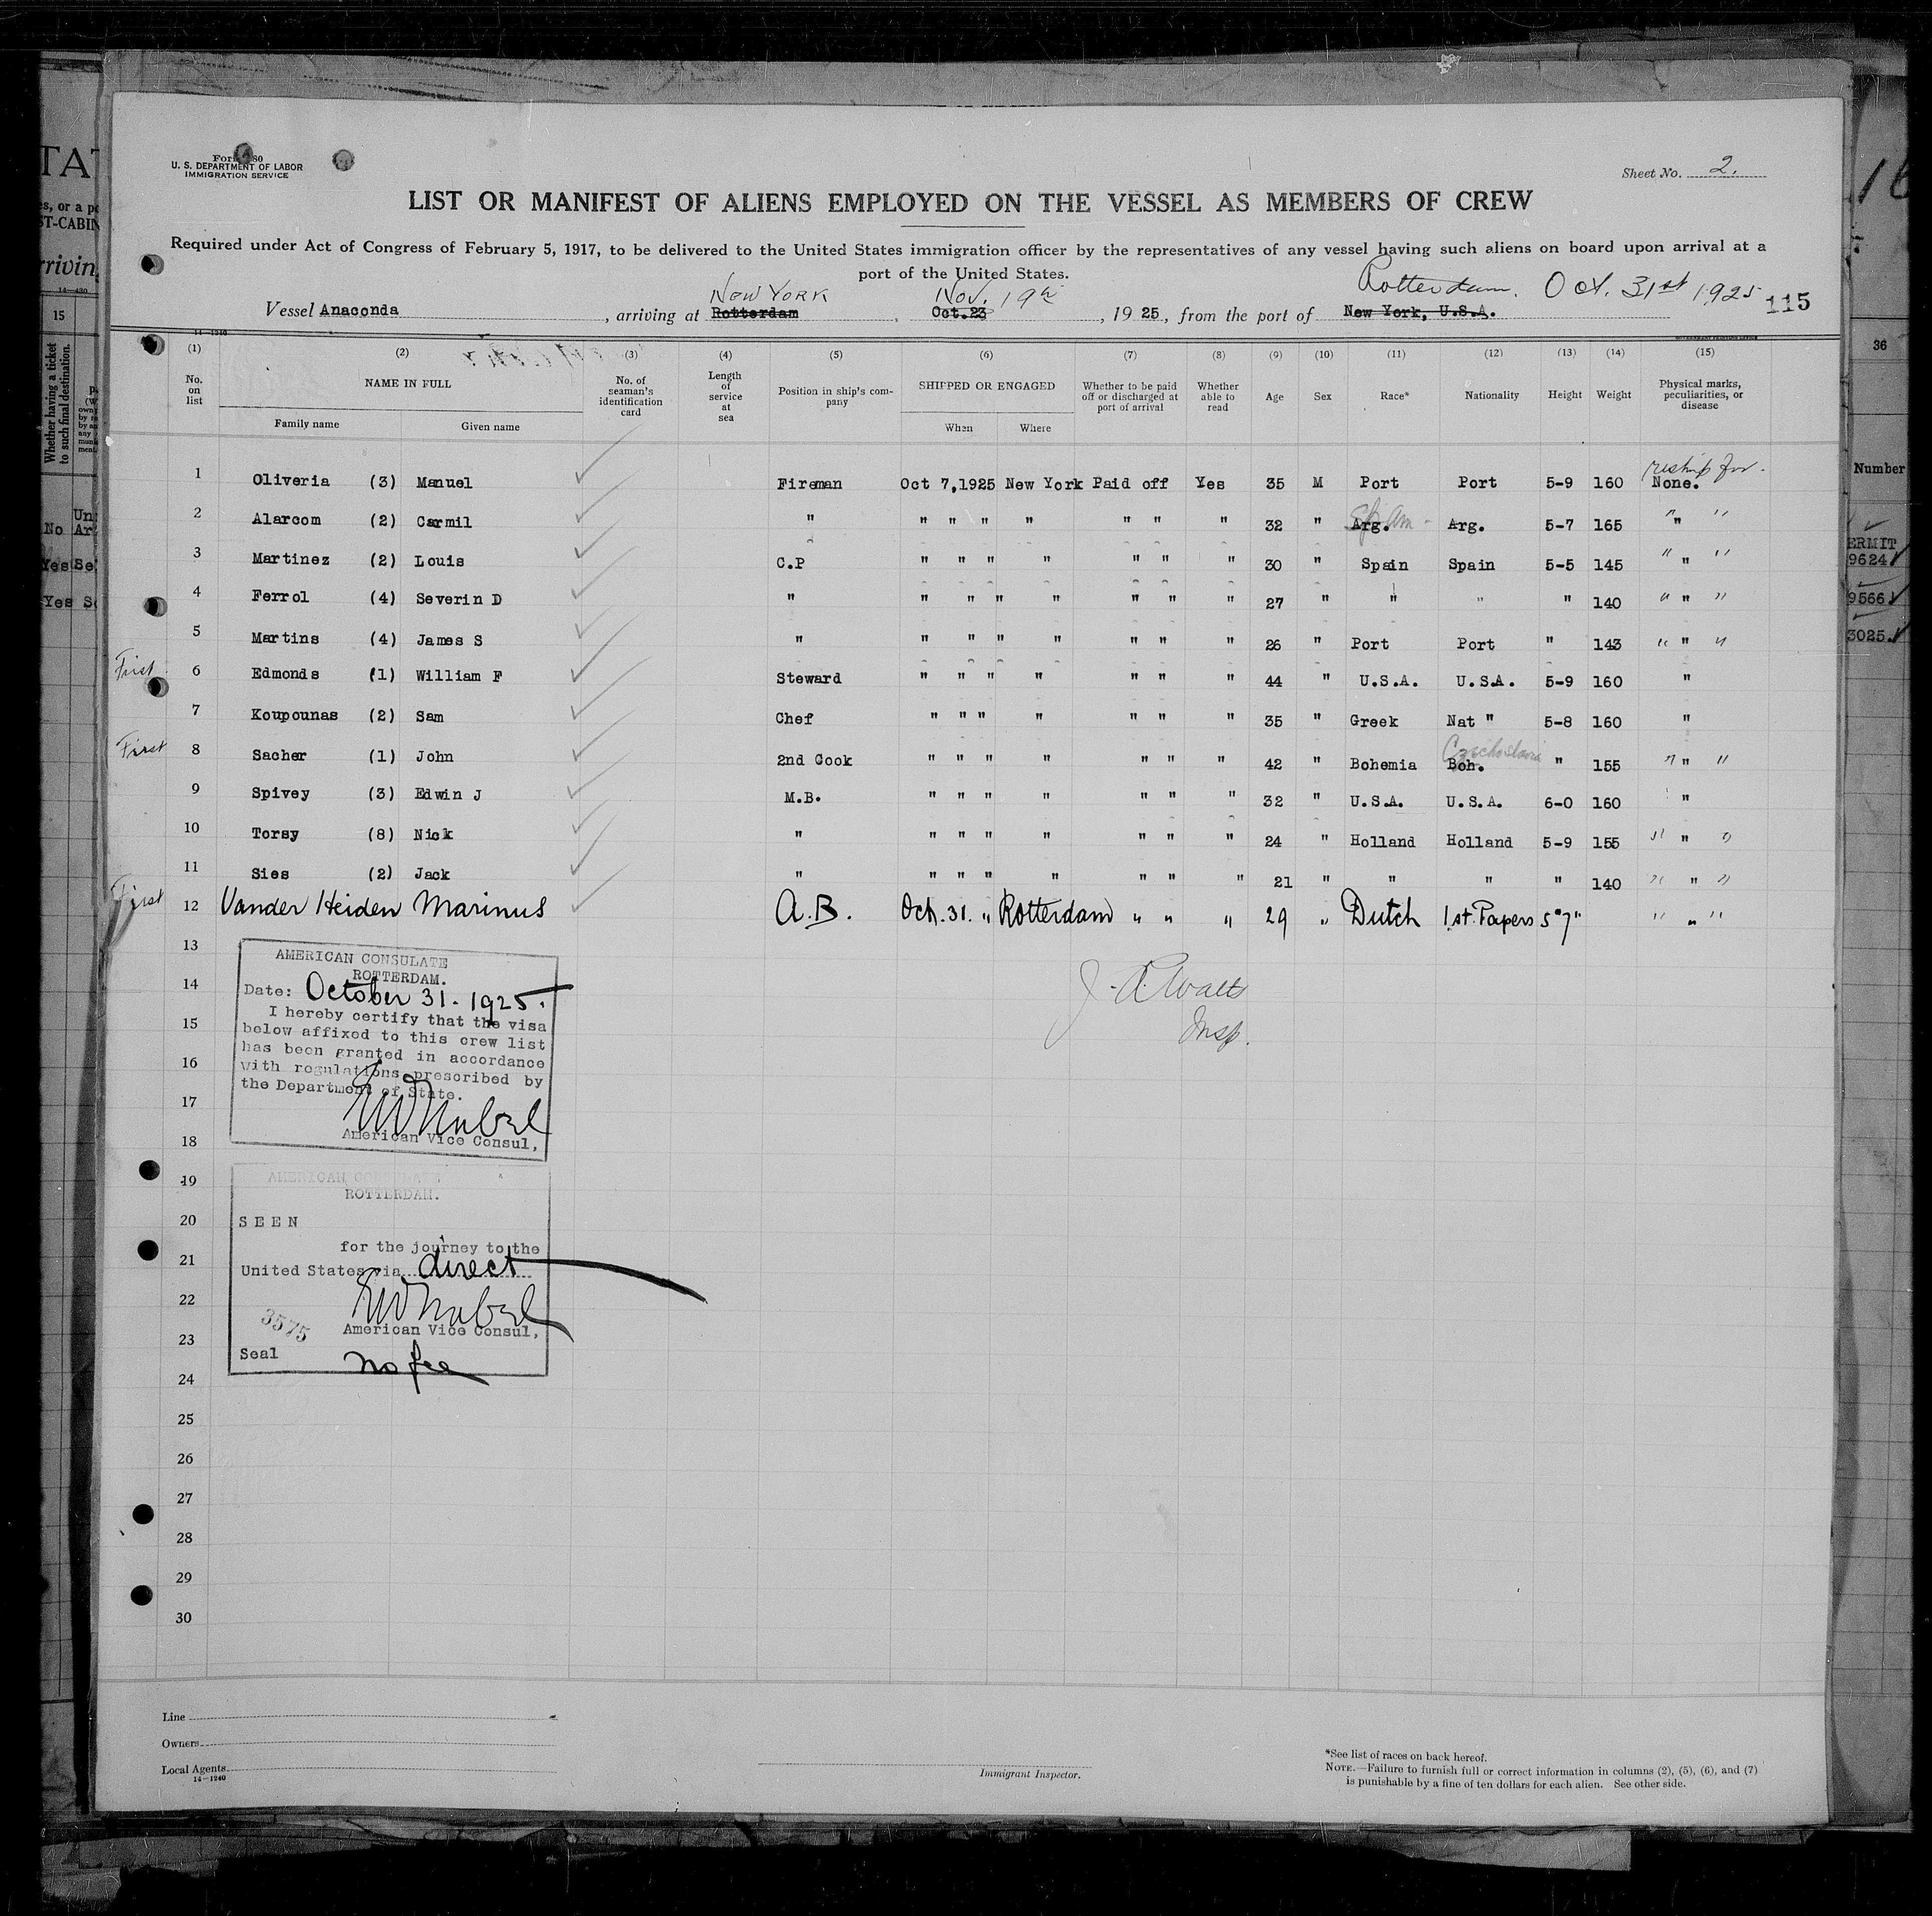 Form 680
U. S. DEPARTMENT OF LABOR
IMMIGRATION SERVICE
Sheet No. 2.
LIST OR MANIFEST OF ALIENS EMPLOYED ON THE VESSEL AS MEMBERS OF CREW
Required under Act of Congress of February 5, 1917, to be delivered to the United States immigration officer by the representatives of any vessel having such aliens on board upon arrival at a
port of the United States.
New York Nov. 19th Rotterdam. Oct. 31st 1925
Vessel Anaconda, arriving at Rotterdam, Oct.23, 1925, from the port of New York, U.S.A. 115
(1) (2) (3) (4) (5) (6) (7) (8) (9) (10) (11) (12) (13) (14) (15)
No. on list
NAME IN FULL
Family name
Given name
No. of seaman's identification card
Length of service at sea
Position in ship's company
SHIPPED OR ENGAGED
When
Where
Whether to be paid off or discharged at port of arrival
Whether able to read
Age
Sex
Race*
Nationality
Height
Weight
Physical marks, peculiarities, or disease
reship for.
1 Oliveria (3) Manuel Fireman Oct 7,1925 New York Paid off Yes 35 M Port Port 5-9 160 None.
2 Alarcom (2) Carmil " " " " " " " " 32 " Arg. Sp Am - Arg. 5-7 165 " " "
3 Martinez (2) Louis C.P " " " " " " " 30 " Spain Spain 5-5 145 " " "
4 Ferrol (4) Severin D " " " " " " " " 27 " " " " 140 " " "
5 Martins (4) James S " " " " " " " " 26 " Port Port " 143 " " "
First 6 Edmonds (1) William F Steward " " " " " " " 44 " U.S.A. U.S.A. 5-9 160 "
7 Koupounas (2) Sam Chef " " " " " " " 35 " Greek Nat " 5-8 160 "
First 8 Sacher (1) John 2nd Cook " " " " " " " 42 " Bohemia Boh. " 155 " " "
9 Spivey (3) Edwin J M.B. " " " " " " " 32 " U.S.A. U.S.A. 6-0 160 "
10 Torsy (8) Nick " " " " " " " " 24 " Holland Holland 5-9 155 " " "
11 Sies (2) Jack " " " " " " " " 21 " " " " 140 " " "
First 12 Vander Heiden Marinus A.B. Oct. 31. " Rotterdam " " " 29 " Dutch 1st. Papers 5"7" " " "
13
14
15
16
17
18
19
20
21
22
23
24
25
26
27
28
29
30
AMERICAN CONSULATE
ROTTERDAM.
Date: October 31 - 1925.
I hereby certify that the visa
below affixed to this crew list
has been granted in accordance
with regulations prescribed by
the Department of State.
American Vice Consul,
J. A. Watts
Insp.
AMERICAN CONSULATE
ROTTERDAM.
SEEN
for the journey to the
United States via direct
American Vice Consul,
3575
Seal
no fee
Line
Owners
Local Agents
14—1240
Immigrant Inspector.
*See list of races on back hereof.
NOTE.—Failure to furnish full or correct information in columns (2), (5), (6), and (7)
is punishable by a fine of ten dollars for each alien. See other side.
15
Whether having a ticket
to such final destination.
No
Yes
Yes
36
Number
ERMIT
9624
9566
3025